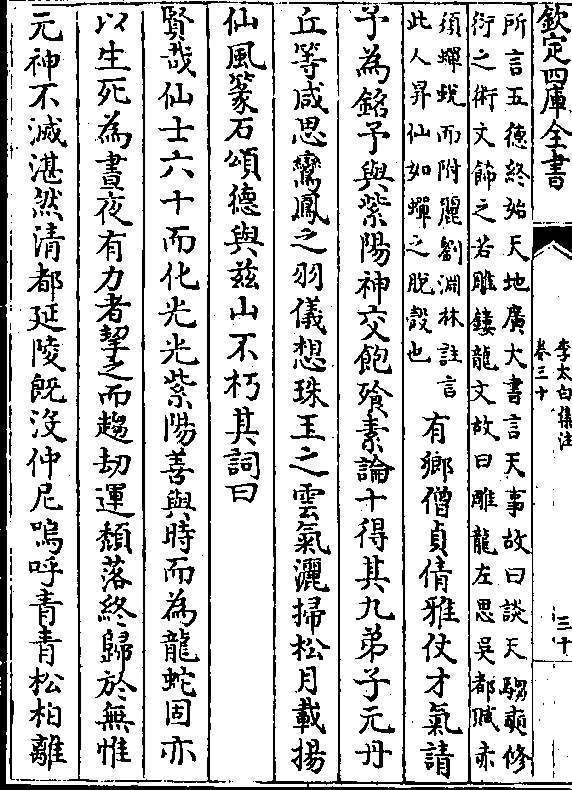 欽定四庫全書
李太白集注
卷三十
三十
所言五德終始天地廣大書言天事故曰談天騶奭修
衍之術文飾之若雕鏤龍文故曰雕龍左思吳都賦亦
須蟬蛻而附麗劉淵林註言
此人昇仙如蟬之脫殼也
有鄉僧貞倩雅仗才氣請
予為銘予與紫陽神交飽飱素論十得其九弟子元丹
丘等咸思鸞鳳之羽儀想珠玉之雲氣灑掃松月載揚
仙風篆石頌德與茲山不朽其詞曰
賢哉仙士六十而化光光紫陽善與時而為龍蛇固亦
以生死為晝夜有力者挈之而趨劫運頽落終歸於無惟
元神不滅湛然清都延陵既沒仲尼嗚呼青青松柏離